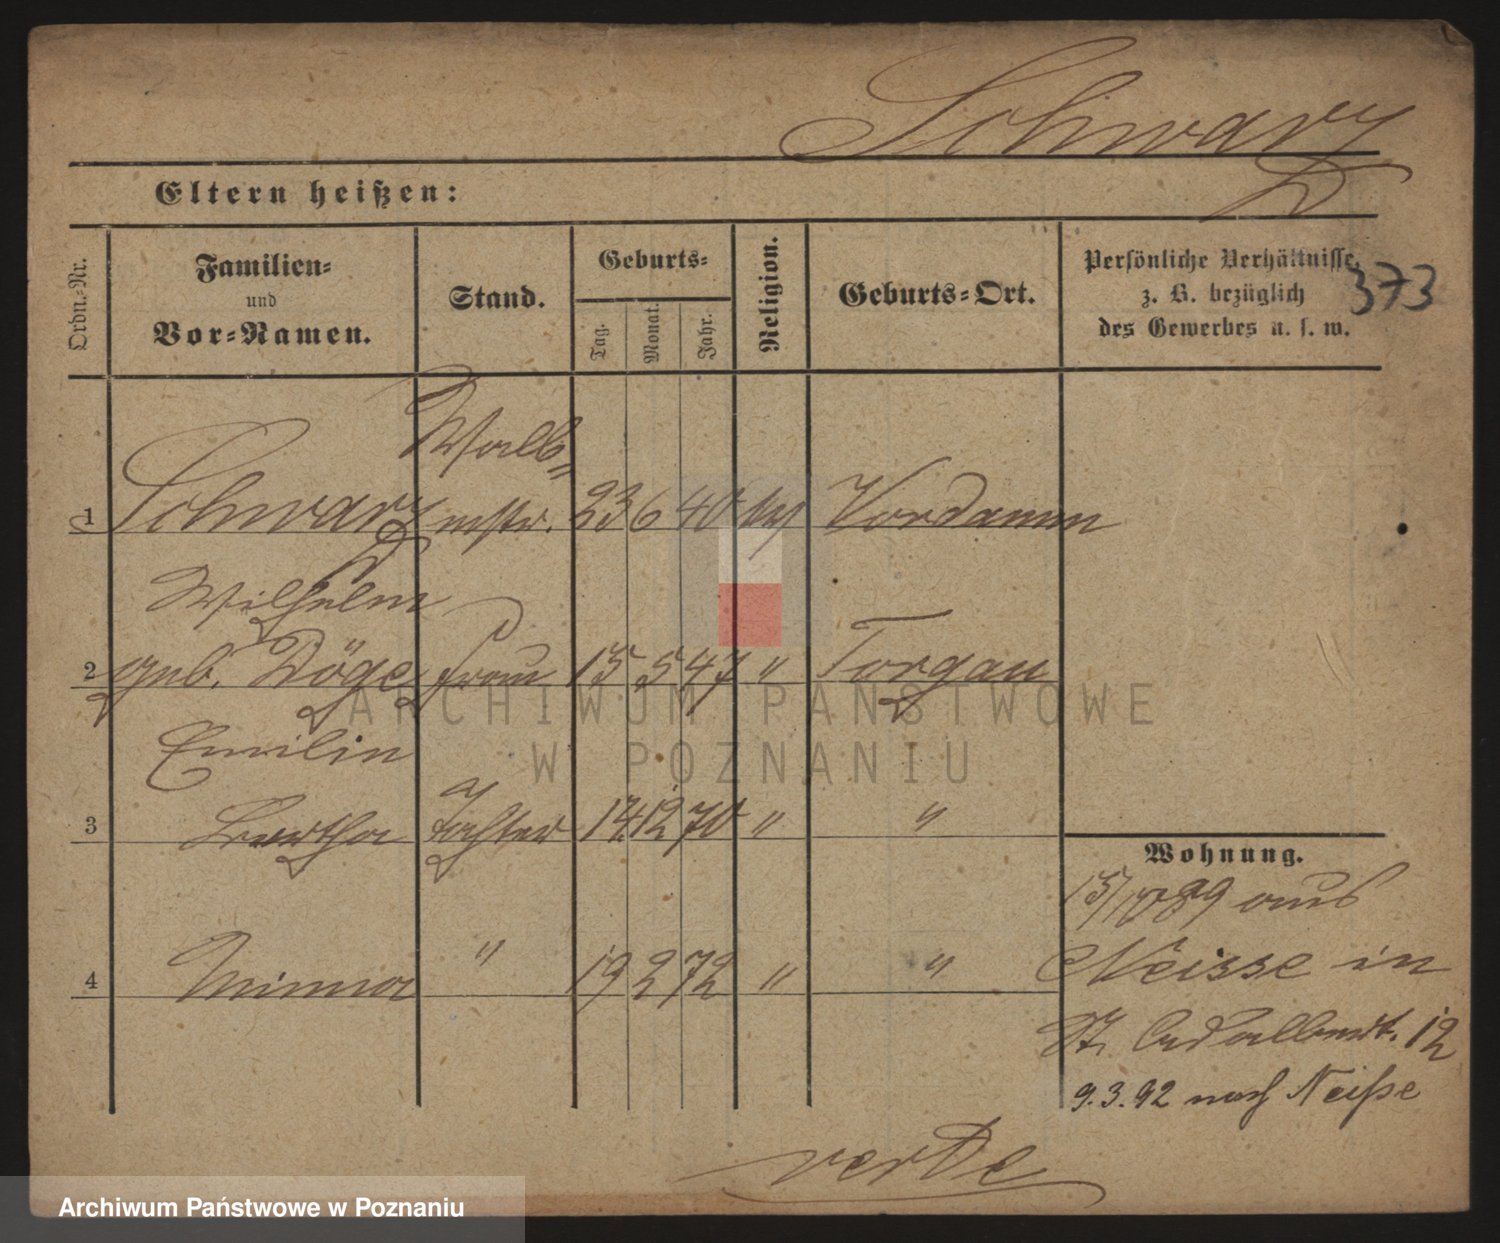 Schwarz
Eltern heißen:
Ordn.-Nr.
Familien-
und
Vor-Namen.
Stand.
Geburts-
Tag.
Monat.
Jahr.
Religion.
Geburts-Ort.
Persönliche Verhältnisse,
z. B. bezüglich
des Gewerbes u. s. w.
373
1 Schwarz mstr. 23 6 40 Vordamm
Wilhelm
2 geb. Döge Frau 15 5 47 " Torgau
Emilie
3 Bertha Tochter 14 12 70 " "
4 Minna " 19 2 72 " "
Wohnung.
15/10 89 aus
Neisse in
St. Adalbertst. 12
9.3.92 nach Neiße
ARCHIWUM PAŃSTWOWE
W POZNANIU
Archiwum Państwowe w Poznaniu